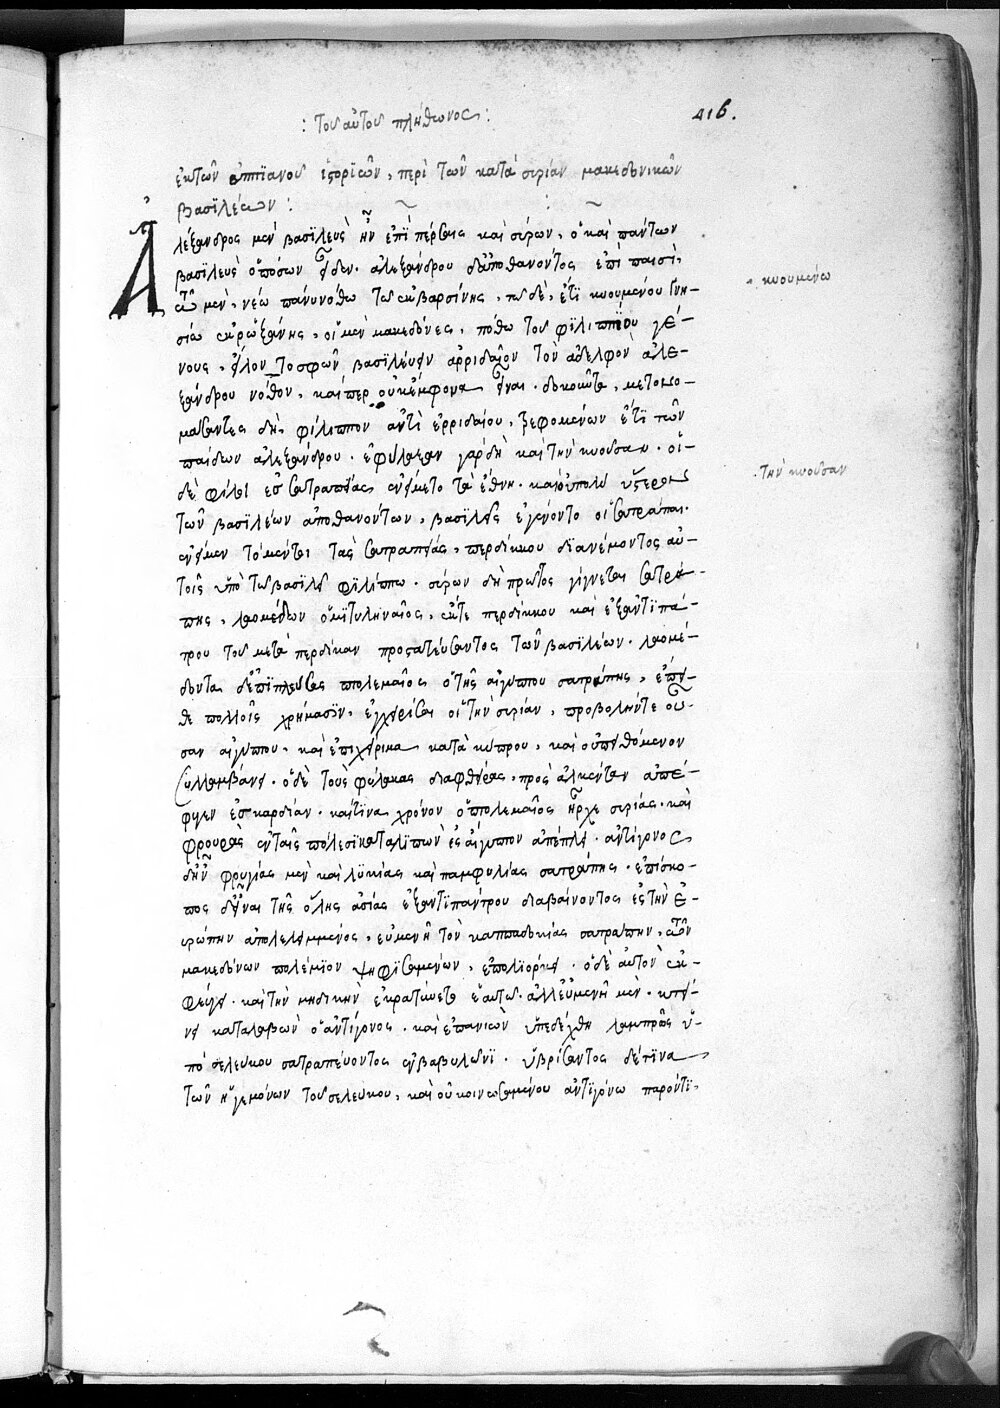 : Τοῦ αὐτοῦ πλήθωνος :
416.
ἐκ τῶν ἀππϊανοῦ ἱστορϊῶν, περὶ τῶν κατὰ συρίαν μακεδονικῶν
βασϊλέων :
Ἀλέξανδρος μὲν βασϊλεὺς ἦν ἐπὶ πέρσαις καὶ σύρων, ὁ καὶ πάντων
βασϊλεὺς ὁπόσων εἶδεν. ἀλεξάνδρου δ' ἀποθανόντος ἐπὶ παισὶ,
τῶ μὲν, νέω πάνυ νόθω τοῦ ἐκ βαρσίνης, τοῦ δὲ, ἔτϊ κυουμένου γνη-
σίω ἐκ ῥωξάνης, οἱ μὲν μακεδόνες, πόθω τοῦ φϊλιππείου γέ-
νους, εἵλοντο σφῶν βασϊλεύειν ἀρριδαῖον τὸν ἀδελφὸν ἀλε-
ξάνδρου νόθον, καί περ οὐκ ἔμφρονα εἶναι δοκοῦντα, μετονο-
μάσαντες δὴ φίλιππον ἀντὶ ἀρριδαίου, τρεφομένων ἔτϊ τῶν
παίδων ἀλεξάνδρου. ἐφύλαξαν γὰρ δὴ καὶ τὴν κυοῦσαν. οἱ
δὲ φίλοι ἐς σατραπείας ἐνείμαντο τὰ ἔθνη. καὶ οὐ πολὺ ὕστερον
τῶν βασϊλέων ἀποθανόντων, βασϊλεῖς ἐγένοντο οἱ σατράπαι.
τὰς σατραπείας, περδίκκου διανέμοντος αὐ-
τοῖς ὑπὸ τῶ βασϊλεῖ φϊλίππω. σύρων δὴ πρῶτος γίγνεται σατρά-
πης, λαομέδων ὁ μϊτυληναῖος, ἔκ τε περδίκκου καὶ ἐξ ἀντϊπά-
τρου τοῦ μετὰ περδίκαν προστατεύσαντος τῶν βασϊλέων. λαομέ-
δοντα δ' ἐπϊπλεύσας πτολεμαῖος ὁ τῆς αἰγύπτου σατράπης, ἔπει-
θε πολλοῖς χρήμασϊν, ἐγχειρίσαι οἱ τὴν συρίαν, προβολήν τε οὖ-
σαν αἰγύπτου, καὶ ἐπιχείρημα κατὰ κύπρου, καὶ οὐ πειθόμενον
συλλαμβάνει. ὁ δὲ τοὺς φύλακας διαφθείρας, πρὸς ἀλκέταν ἀπέ-
φυγεν ἐς καρδίαν. καί τϊνα χρόνον ὁ πτολεμαῖος ἦρχε συρίας. καὶ
φρουρὰς ἐν ταῖς πόλεσϊ καταλιπὼν ἐς αἴγυπτον ἀπέπλει. ἀντίγονος
δ' ἦν φρυγίας μὲν καὶ λυκίας καὶ παμφυλίας σατράπης. ἐπίσκο-
πος δ' εἶναι τῆς ὅλης ἀσίας ἐξ ἀντϊπάτρου διαβαίνοντος ἐς τὴν εὐ-
ρώπην ἀπολελειμμένος, εὐμενῆ τὸν καππαδοκίας σατράπην, τῶν
μακεδόνων πολέμϊον ψηφϊσαμένων, ἐπολϊόρκει. ὁ δὲ αὐτὸν ἐκ-
φεύγει. καὶ τὴν μηδικὴν ἐκρατύνετο ἑαυτῶ. ἀλλ' εὐμενῆ μὲν, κτεί-
νει καταλαβὼν ὁ ἀντίγονος. καὶ ἐπανιὼν ὑπεδέχθη λαμπρῶς ὑ-
πὸ σελεύκου σατραπεύοντος ἐν βαβυλῶνϊ. ὑβρίσαντος δέ τϊνα
τῶν ἡγεμόνων τοῦ σελεύκου, καὶ οὐ κοινωσαμένου ἀντϊγόνω παρόντϊ,
κυουμένω
τὴν κυοῦσαν